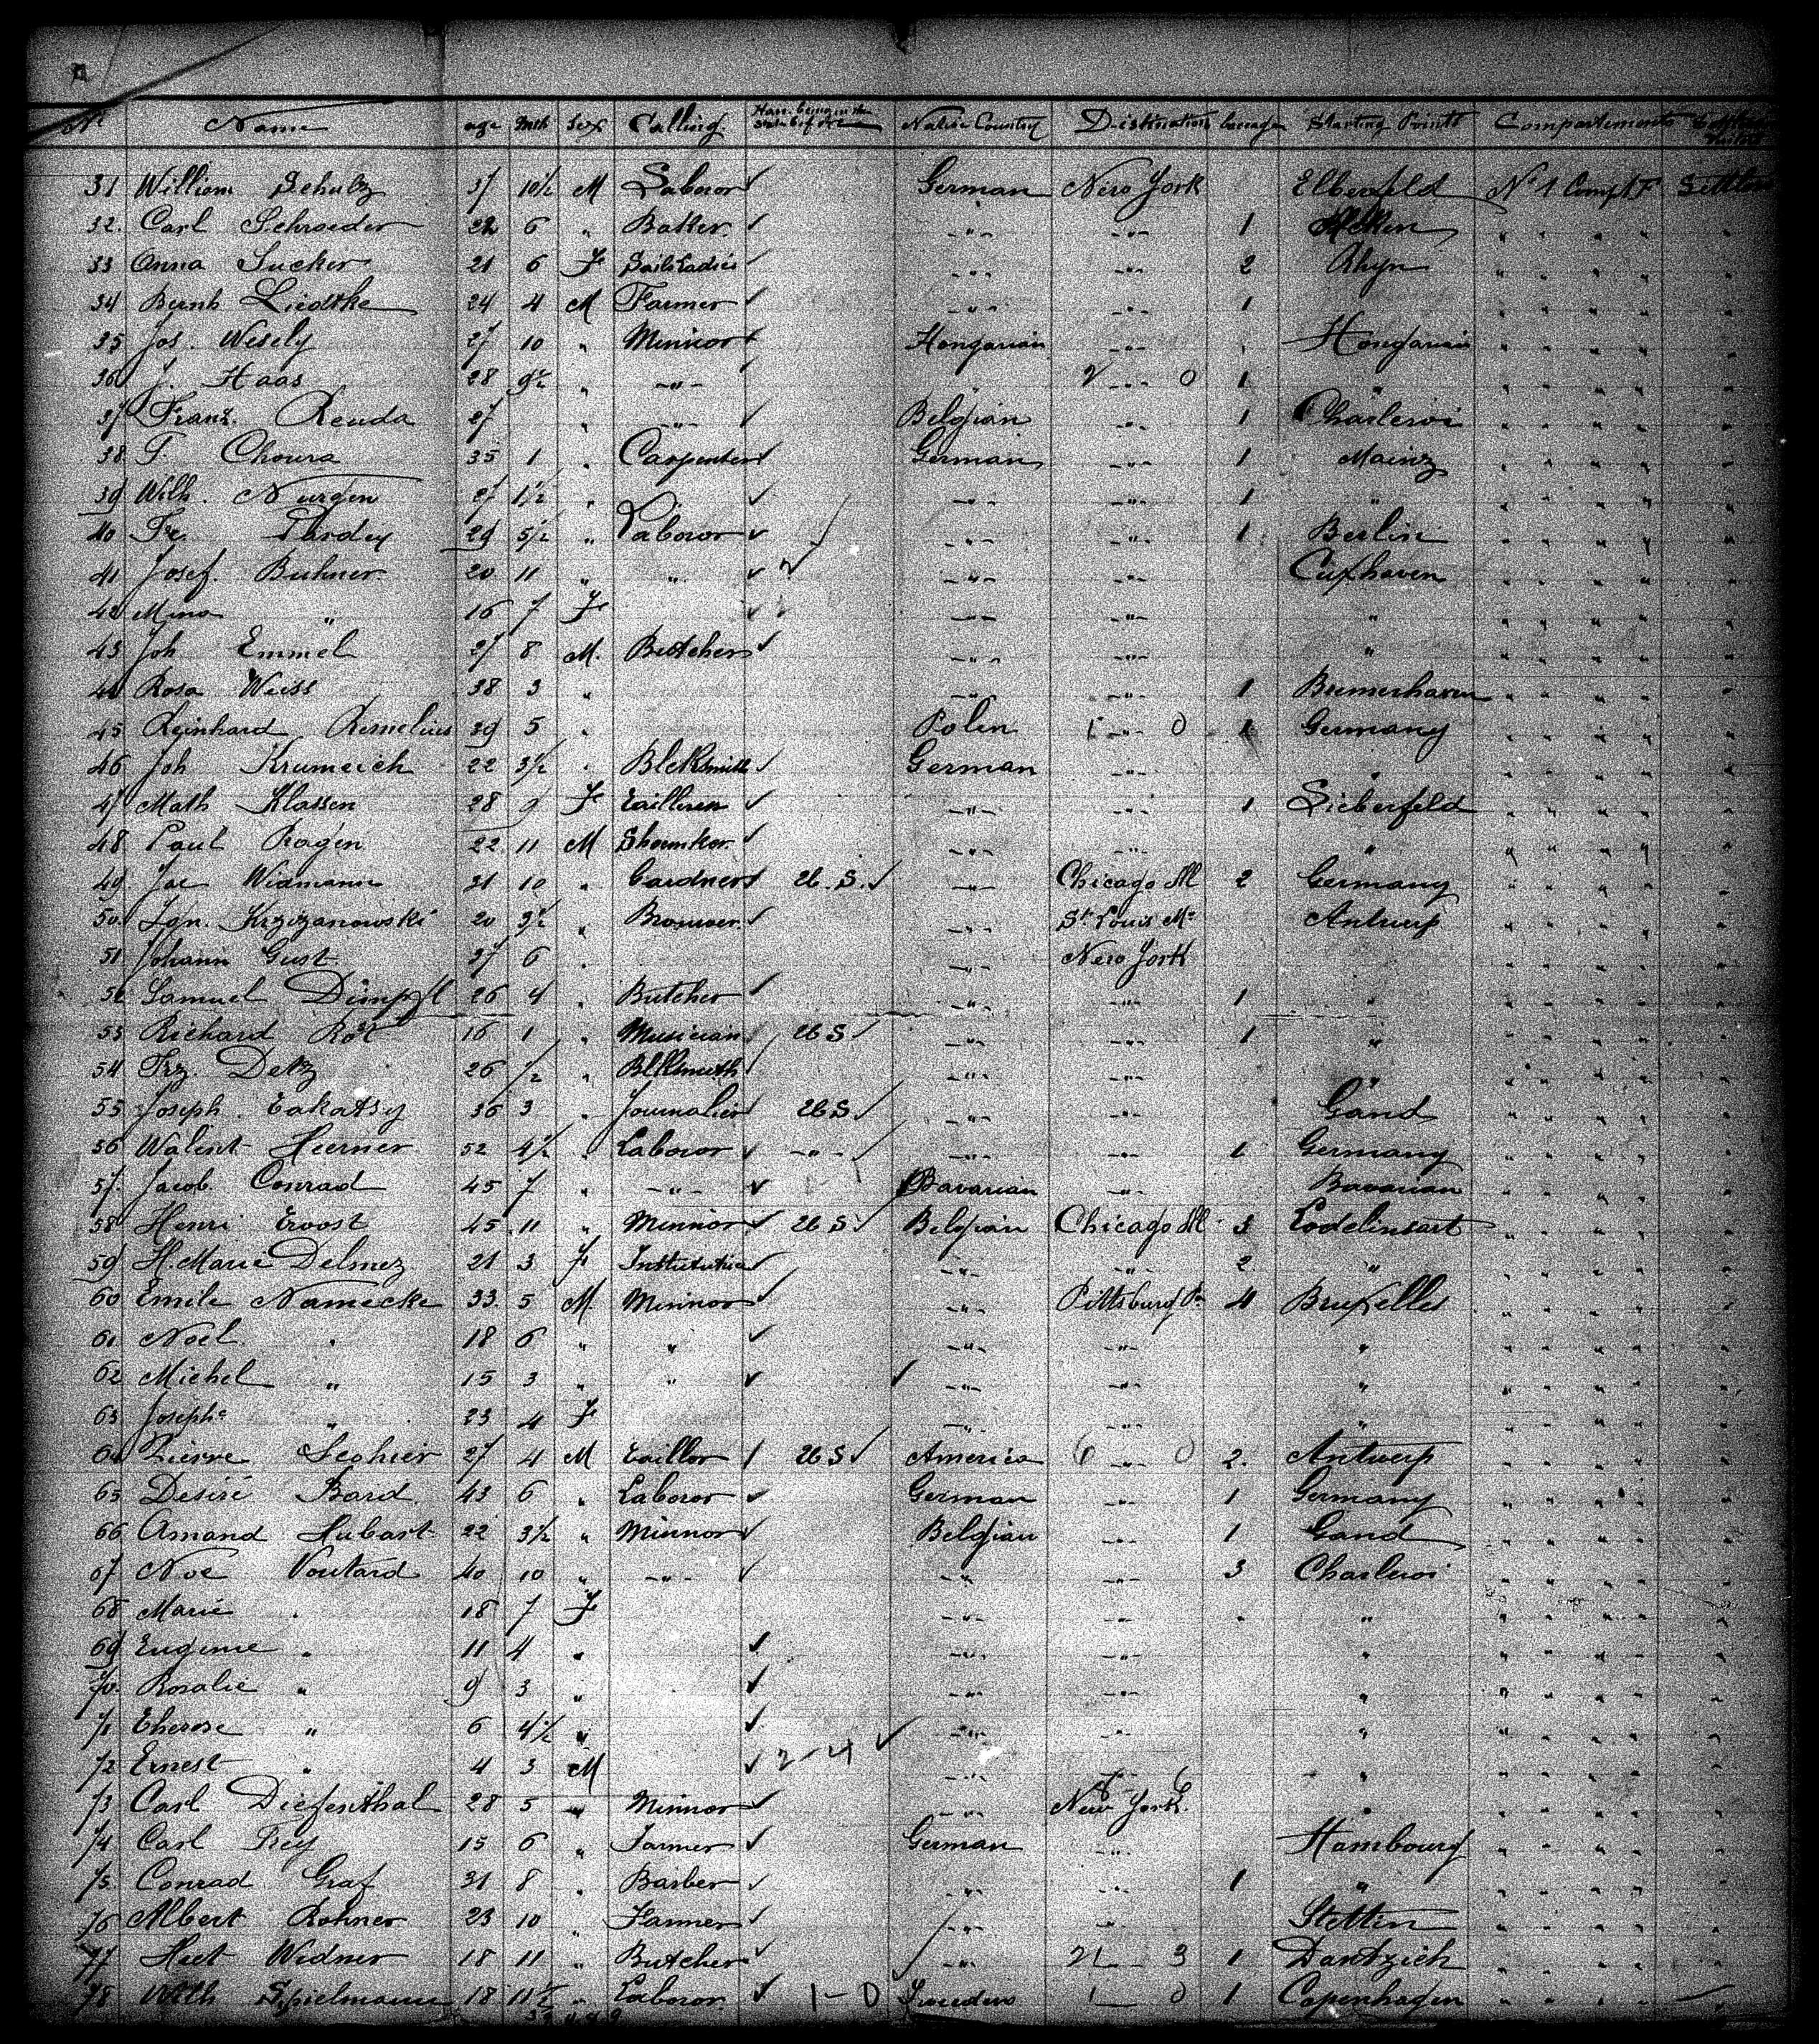 No Name age Mth Sex Calling Have being in the States before Native Country Distination luccage Starting Points Compartements
31 William Schulz 37 10½ M Laboror ✓ German New York Elberfeld No 1 Compt F Settlers
32. Carl Schroeder 22 6 " Baker ✓ -"- -"- 1 " " " " "
33 Anna Sucker 21 6 F ✓ -"- -"- 2 Rhyn " " " " "
34 Bernh Liedtke 24 4 M Farmer ✓ -"- -"- 1 " " " " "
35 Jos. Wesely 27 10 " Minnor ✓ Hongarian -"- Hongarian " " " " "
36 J. Haas 28 9½ " -"- ✓ " 2 -"- 0 1 " " " " " "
37 Franz. Reuda 27 " -"- ✓ Belgian -"- 1 Charleroi " " " " "
38 T. Choura 35 1 " Carpenter ✓ German -"- 1 Mainz " " " " "
39 Wilh. Nurgen 27 1½ " ✓ -"- -"- 1 " " " " " "
40 Fr. Pardey 29 5½ " Laboror ✓ -"- -"- 1 Berlin " " " " "
41 Josef. Buhner 20 11 " " ✓ -"- -"- Cuxhaven " " " " "
42 Mina " 16 7 F ✓ -"- -"- " " " " " "
43 Joh Emmel 27 8 M. Butcher ✓ -"- -"- " " " " " "
44 Rosa Weiss 38 3 " -"- -"- 1 Bremerhaven " " " " "
45 Reinhard Remelius 39 5 " Polen 1 -"- 0 1 Germany " " " " "
46 Joh Krumeich 22 3½ " Blcksmith ✓ German -"- " " " " " "
47 Math Klassen 28 9 F Tailleren ✓ -"- -"- 1 Lieberfeld " " " " "
48 Paul Ragen 22 11 M Shoemker. ✓ -"- -"- " " " " " "
49 Jac Widmann 31 10 " Gardner ✓ U. S. ✓ -"- Chicago Ill 2 Germany " " " " "
50. Ign. Krzizanowski 20 3½ " Brouwer. ✓ -"- St Louis Mo Antwerp " " " " "
51 Johann Gust 37 6 " -"- New York " " " " "
52 Samuel Dimpfl 26 4 " Butcher ✓ -"- -"- 1 " " " " " "
53 Richard Rot 16 1 " Musician U S. ✓ -"- -"- 1 " " " " " "
54 Frz. Detz 26 ½ " Blksmith -"- -"- " " " " " "
55 Joseph Takatsy 36 3 " Journalier U S ✓ -"- -"- Gand " " " " "
56 Walent Hierner 52 4½ " Laboror ✓ -"- ✓ -"- -"- 1 Germany " " " " "
57. Jacob. Conrad 45 7 " -"- ✓ Bavarian -"- Bavarian " " " " "
58 Henri Evost 45 11 " Minnor ✓ U S ✓ Belgian Chicago Ill 3 Lodelinsart " " " " "
59 H. Marie Delmez 21 3 F Institutrice ✓ -"- -"- 2 " " " " " "
60 Emile Namecke 33. 5 M. Minnor ✓ -"- Pittsburg Pa 4 Bruxelles " " " " "
61 Noel " 18 6 " " ✓ -"- -"- " " " " " "
62 Michel " 15 3 " " ✓ ✓ -"- -"- " " " " " "
63 Josephe " 23 4 F -"- -"- " " " " " "
64 Pierre Seghier 27 4 M Taillor U S ✓ America 6 -"- 0 2. Antwerp " " " " "
65 Desiré Bard 43 6 " Laboror ✓ German -"- 1 Germany " " " " "
66 Amand Hubart 22 3½ " Minnor ✓ Belgian -"- 1 Gand " " " " "
67 Noe Voutard 40 10 " -"- ✓ " -"- 3 Charleroi " " " " "
68 Marie " 18 7 F -"- -"- " " " " " " "
69 Eugenie " 11 4 " ✓ -"- -"- " " " " " "
70. Rosalie " 9 3 " ✓ -"- -"- " " " " " "
71 Therese " 6 4½ " ✓ -"- -"- " " " " " "
72 Ernest " 4 3 M ✓ 2-4 ✓ -"- -"- " " " " " "
73 Carl Diefenthal 28 5 " Minnor ✓ -"- New York. " " " " " "
74 Carl Frey 15 6 " Farmer ✓ German -"- Hambourg " " " " "
75. Conrad Graf 31 8 " Barber ✓ -"- -"- 1 " " " " " "
76 Albert Rohner 23 10 " Farmer ✓ -"- " Stettin " " " " "
77 Hect Widner 18 11 " Butcher ✓ -"- 21 3 1 Dantzich " " " " "
78 Spielmann 18 11½ " Laboror ✓ 1-0 Sweden 1 0 1 Copenhagen " " " " "